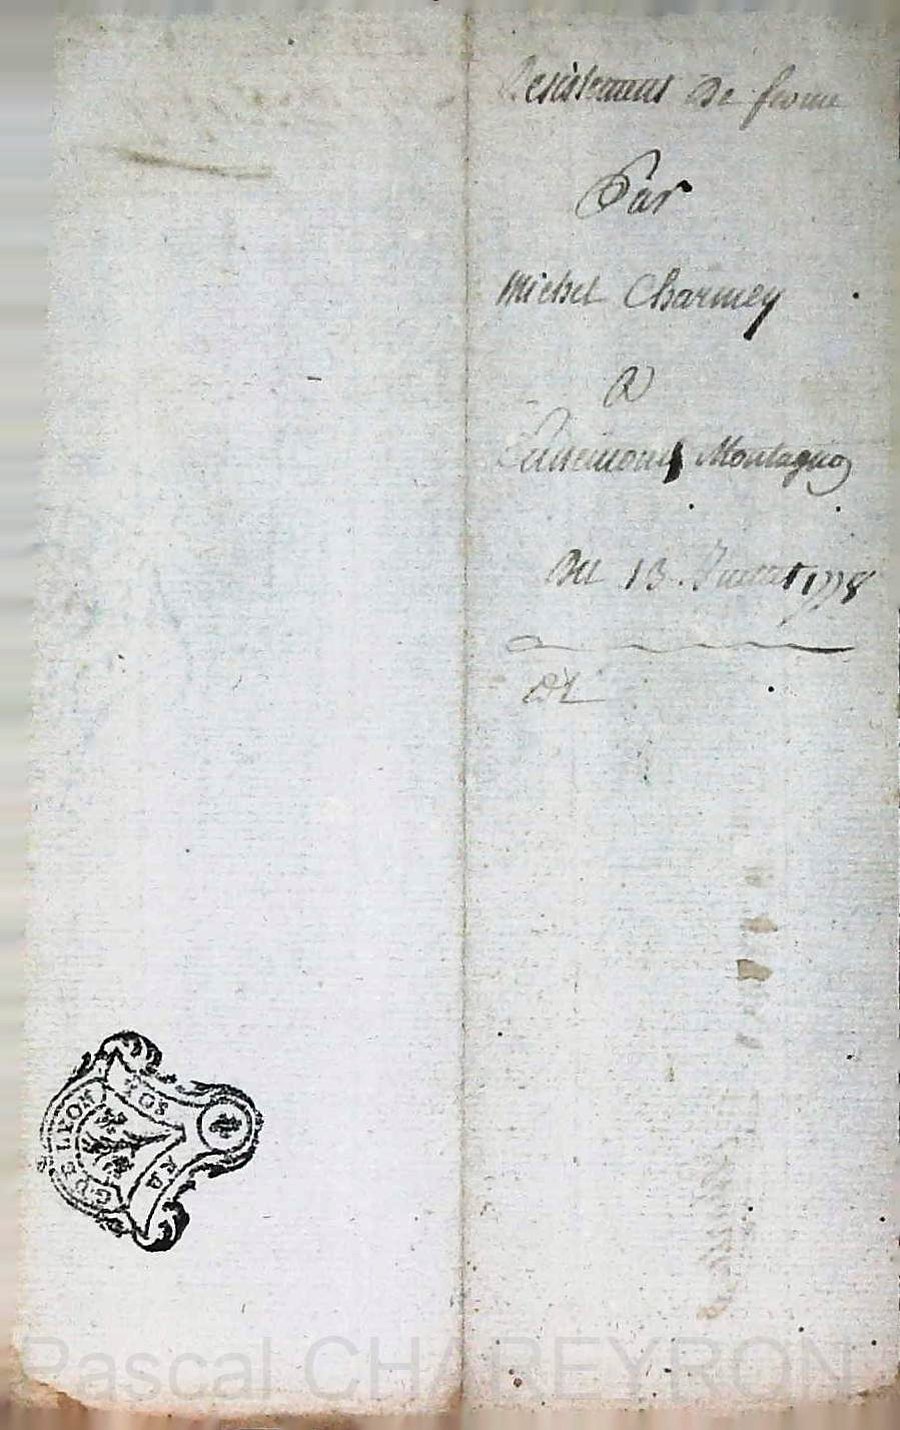 Desistement De ferme
Par
Michel Charmey
A
Montagny
Du 13. Juillet 1778
G DE LYON
SOLS
Pascal CHAREYRON